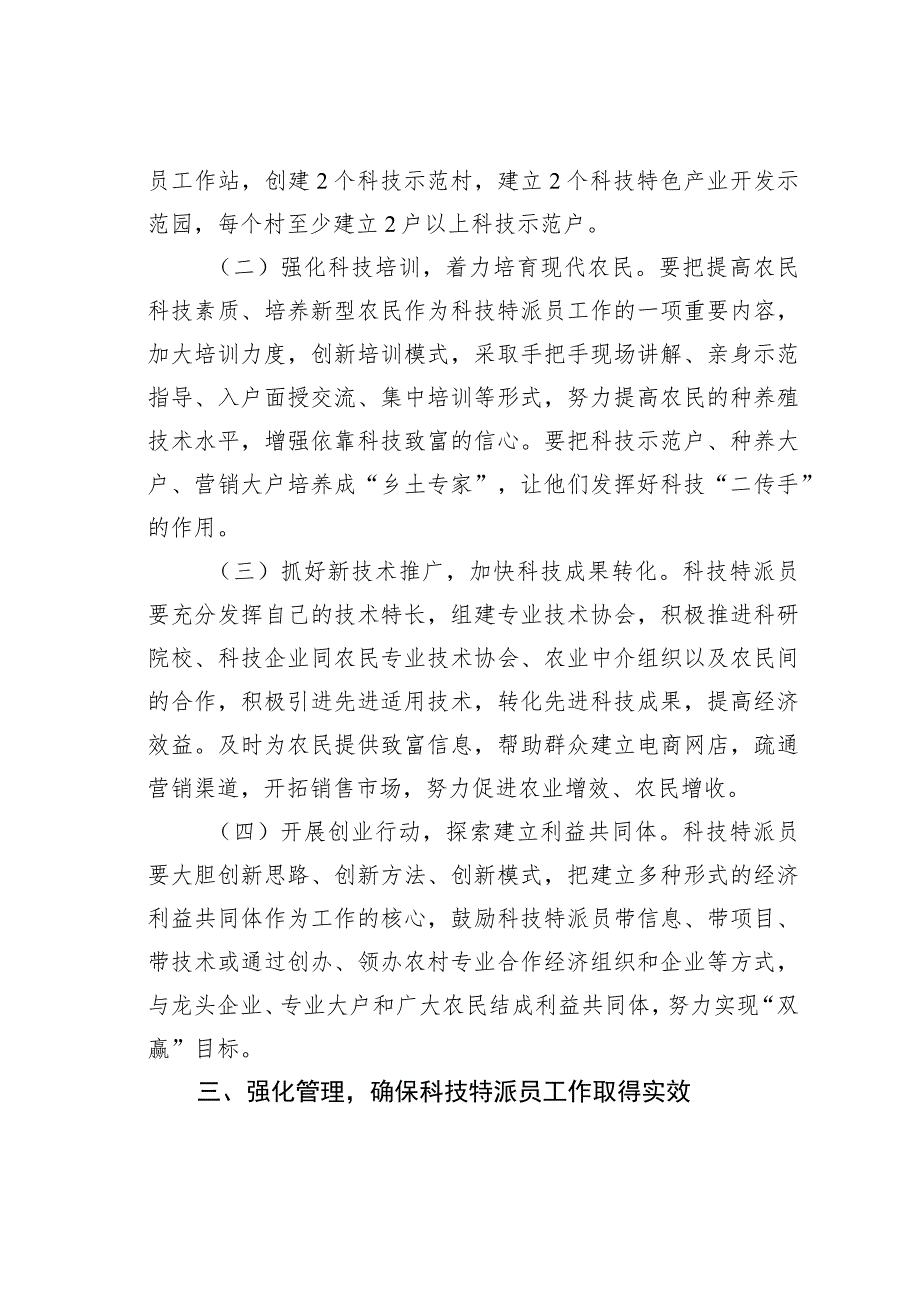 员工作站，创建2个科技示范村，建立2个科技特色产业开发示
范园，每个村至少建立2户以上科技示范户。
（二）强化科技培训，着力培育现代农民。要把提高农民
科技素质、培养新型农民作为科技特派员工作的一项重要内容，
加大培训力度，创新培训模式，采取手把手现场讲解、亲身示范
指导、入户面授交流、集中培训等形式，努力提高农民的种养殖
技术水平，增强依靠科技致富的信心。要把科技示范户、种养大
户、营销大户培养成“乡土专家”，让他们发挥好科技“二传手”
的作用。
（三）抓好新技术推广，加快科技成果转化。科技特派员
要充分发挥自己的技术特长，组建专业技术协会，积极推进科研
院校、科技企业同农民专业技术协会、农业中介组织以及农民间
的合作，积极引进先进适用技术，转化先进科技成果，提高经济
效益。及时为农民提供致富信息，帮助群众建立电商网店，疏通
营销渠道，开拓销售市场，努力促进农业增效、农民增收。
（四）开展创业行动，探索建立利益共同体。科技特派员
要大胆创新思路、创新方法、创新模式，把建立多种形式的经济
利益共同体作为工作的核心，鼓励科技特派员带信息、带项目、
带技术或通过创办、领办农村专业合作经济组织和企业等方式，
与龙头企业、专业大户和广大农民结成利益共同体，努力实现“双
赢”目标。
三、强化管理，确保科技特派员工作取得实效